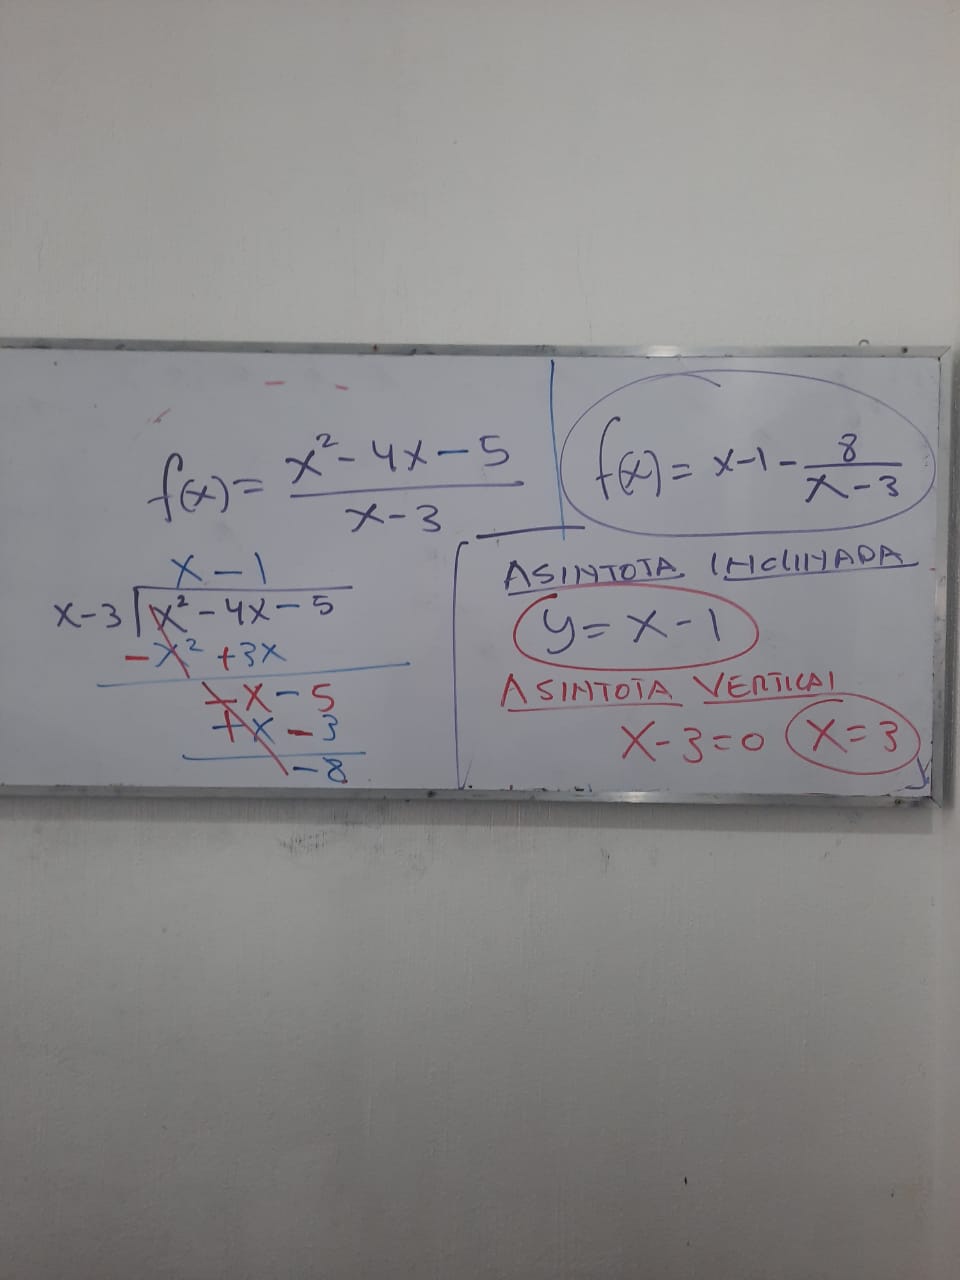 f(x) = x² - 4x - 5
x - 3
x - 1
x - 3 x² - 4x - 5
- x² + 3x
- x - 5
+ x - 3
- 8
f(x) = x - 1 - 8
x - 3
ASINTOTA INCLINADA
y = x - 1
ASINTOTA VERTICAL
x - 3 = 0 x = 3